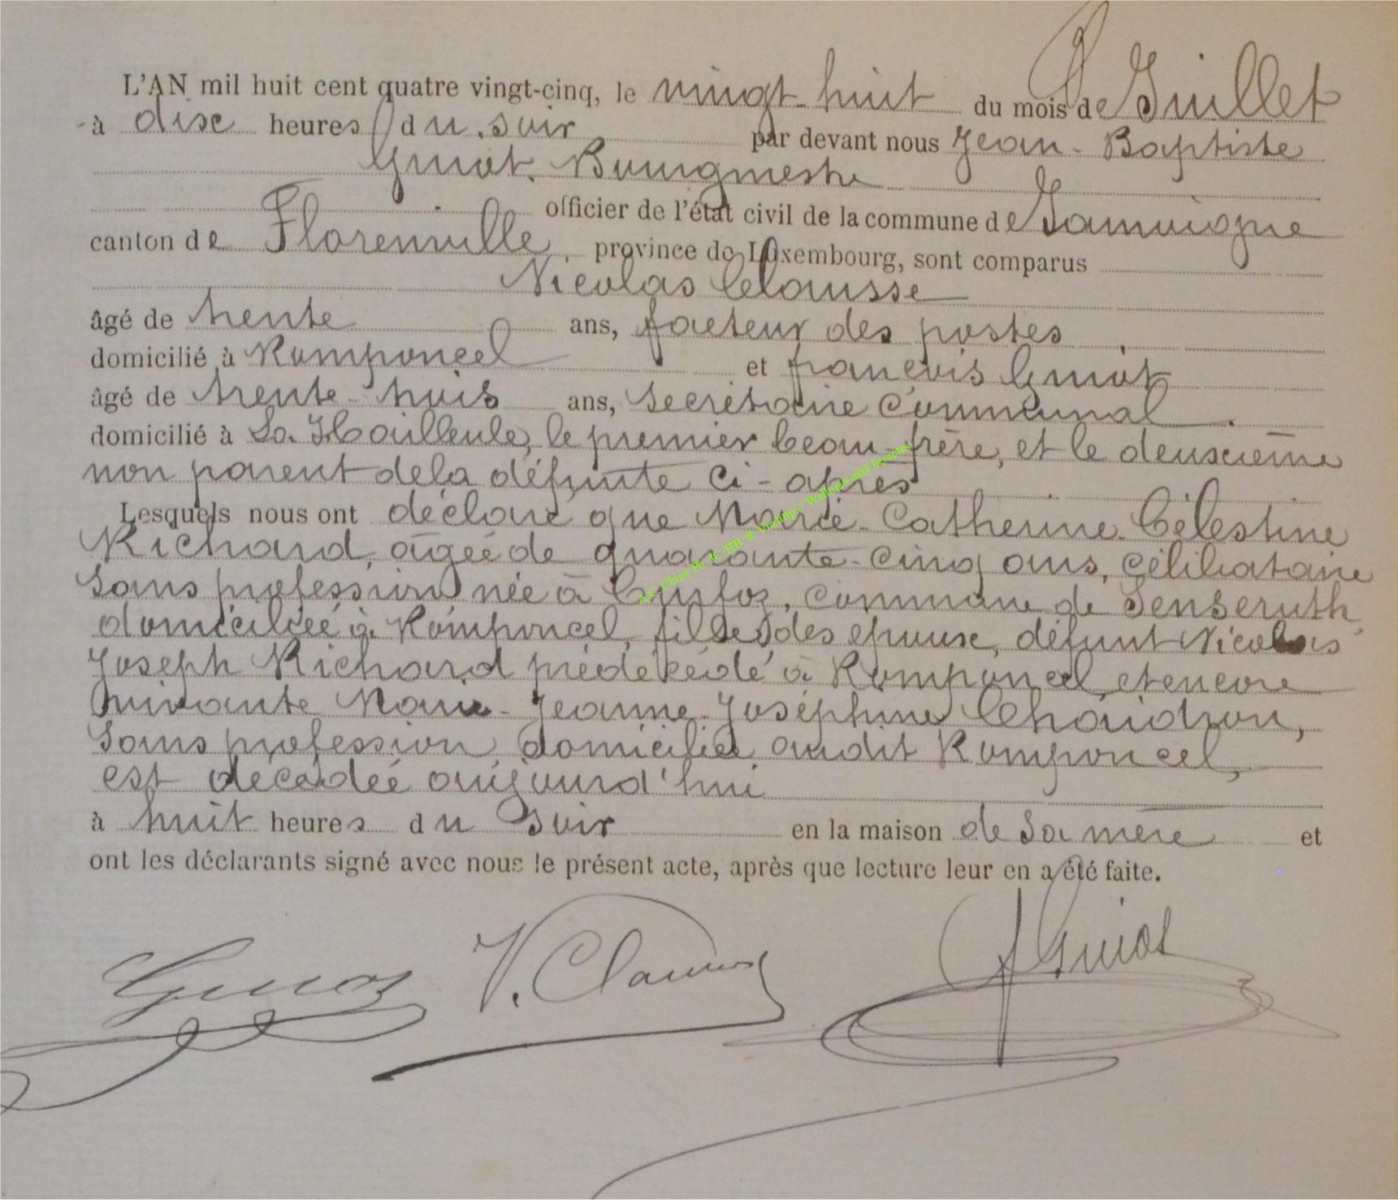 L'AN mil huit cent quatre vingt-cinq, le vingt-huit du mois de Juillet
à dix heures du soir par devant nous Jean-Baptiste
Guiot. Bourgmestre
officier de l'état civil de la commune de Jamoigne
canton de Florenville, province de Luxembourg, sont comparus
Nicolas Clausse
âgé de trente ans, facteur des postes.
domicilié à Romponcel et françois Guiot
âgé de trente-trois ans, Secrétaire Communal.
domicilié à La Hailleule, le premier beau-frère, et le deuxième
non parent de la défunte ci-après
Lesquels nous ont déclaré que Marie-Catherine-Célestine
Richard, âgée de quarante-cinq ans, célibataire
sans profession née à Cugfoz, commune de Senseruth
domiciliée à Romponcel, fille des époux, défunt Nicolas
Joseph Richard prédécédé à Romponcel, et encore
vivante Marie-Jeanne-Joséphine Chaidron,
sans profession domiciliée audit Romponcel,
est décédée aujourd'hui
à huit heures du soir en la maison de sa mère et
ont les déclarants signé avec nous le présent acte, après que lecture leur en a été faite.
Guiot N. Clausse f Guiot